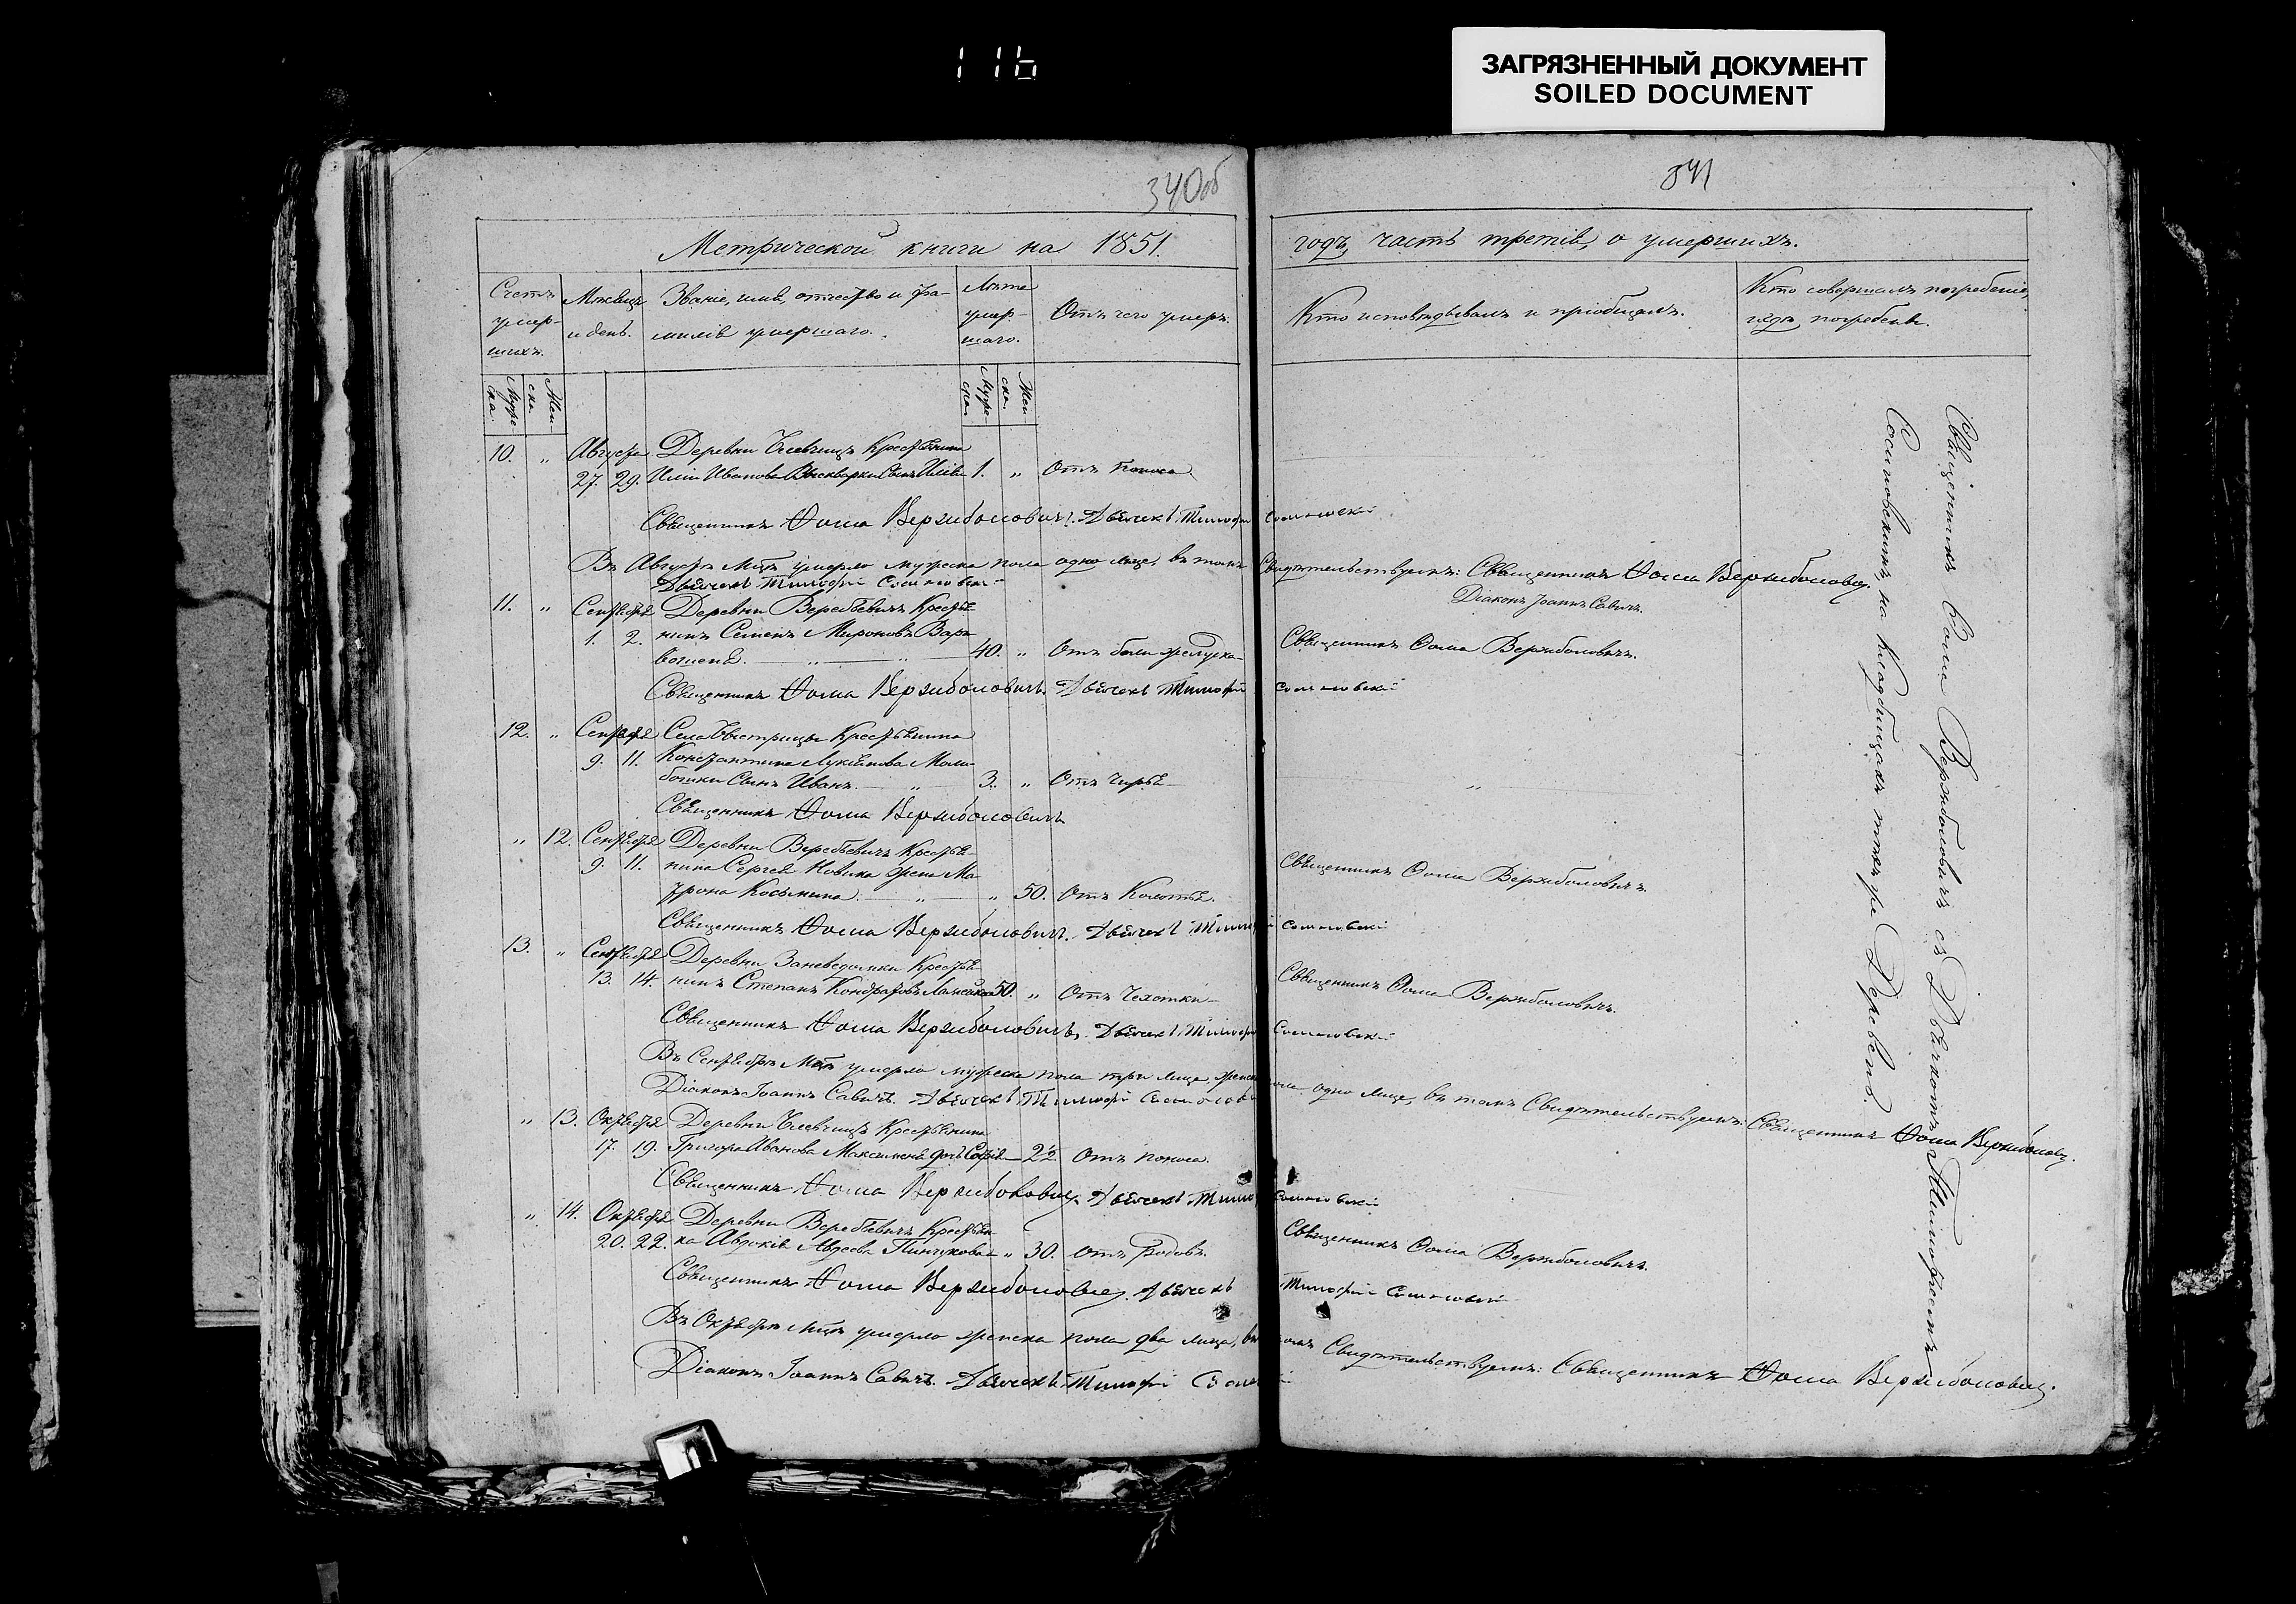 116
ЗАГРЯЗНЕННЫЙ ДОКУМЕНТ
SOILED DOCUMENT
340об
341
Метрической книги на 1851.
годъ, часть третія, о умершихъ.
Счетъ умер-шихъ.
Мѣсяцъ и день.
Званіе, имя, отчество и фа-
милія умершаго.
Лѣта умер-шаго.
Отъ чего умеръ.
Кто исповѣдывалъ и пріобщалъ.
Кто совершалъ погребеніе,
и гдѣ погребенъ.
Муже-ска.
Жен-ска.
Муже-ска.
Жен-ска.
10. „ Августа Деревни Крестьянина
27. 29. Иліи Иванова Сынъ Илія 1. „ Отъ поноса
Священникъ Ѳома Вержболовичъ. Дьячекъ Тимофей Сосиновскій
Въ Августѣ Мцѣ умерло мужеска пола одно лице, въ томъ Свидѣтельствуемъ: Священникъ Ѳома Вержболовичъ.
Дьячекъ Тимофей Сосиновскій
Діаконъ Іоаннъ Савичъ.
11. „ Сентября Деревни Веребьевичъ Крестья-
1. 2. нинъ Семенъ Мироновъ
40. „ Отъ боли желудка
Священникъ Ѳома Вержболовичъ.
Священникъ Ѳома Вержболовичъ. Дьячекъ Тимофей Сосиновскій
12. „ Сентября Села Быстрицы Крестьянина
9. 11. Константина Лукіянова
Сынъ Иванъ. „ 3. „ Отъ „
Священникъ Ѳома Вержболовичъ
„ 12. Сентября Деревни Веребьевичъ Крестья-
9. 11. нина Сергея Новика жена Ма-
трона Косьмина. „ „ 50. Отъ Колотья.
Священникъ Ѳома Вержболовичъ.
Священникъ Ѳома Вержболовичъ. Дьячекъ Тимофей Сосиновскій
13. „ Сентября Деревни Крестья-
13. 14. нинъ Степанъ Кондратовъ 50. „ Отъ Чехотки
Священникъ Ѳома Вержболовичъ.
Священникъ Ѳома Вержболовичъ. Дьячекъ Тимофей Сосиновскій
Въ Сентябрѣ Мцѣ умерло мужеска пола три лица, женска пола одно лице, въ томъ Свидѣтельствуемъ: Священникъ Ѳома Вержболовичъ.
Діаконъ Іоаннъ Савичъ. Дьячекъ Тимофей Сосиновскій
„ 13. Октября Деревни Крестьянина
17. 19. Григора Иванова дочь Софія 22. Отъ поноса.
Священникъ Ѳома Вержболовичъ Дьячекъ Тимофей Сосиновскій
„ 14. Октября Деревни Веребьевичъ Крестьян-
20. 22. ка Авдокія Авдеева Пинчукова „ 30. Отъ родовъ.
Священникъ Ѳома Вержболовичъ.
Священникъ Ѳома Вержболовичъ. Дьячекъ Тимофей Сосиновскій
Въ Октябрѣ Мцѣ умерло женска пола два лица, въ томъ Свидѣтельствуемъ: Священникъ Ѳома Вержболовичъ.
Діаконъ Іоаннъ Савичъ. Дьячекъ Тимофей Сосиновскій
Священникъ Ѳома Вержболовичъ съ Дьячкомъ Тимофеемъ
Сосиновскимъ, на кладбищахъ тѣхъ же Деревень.